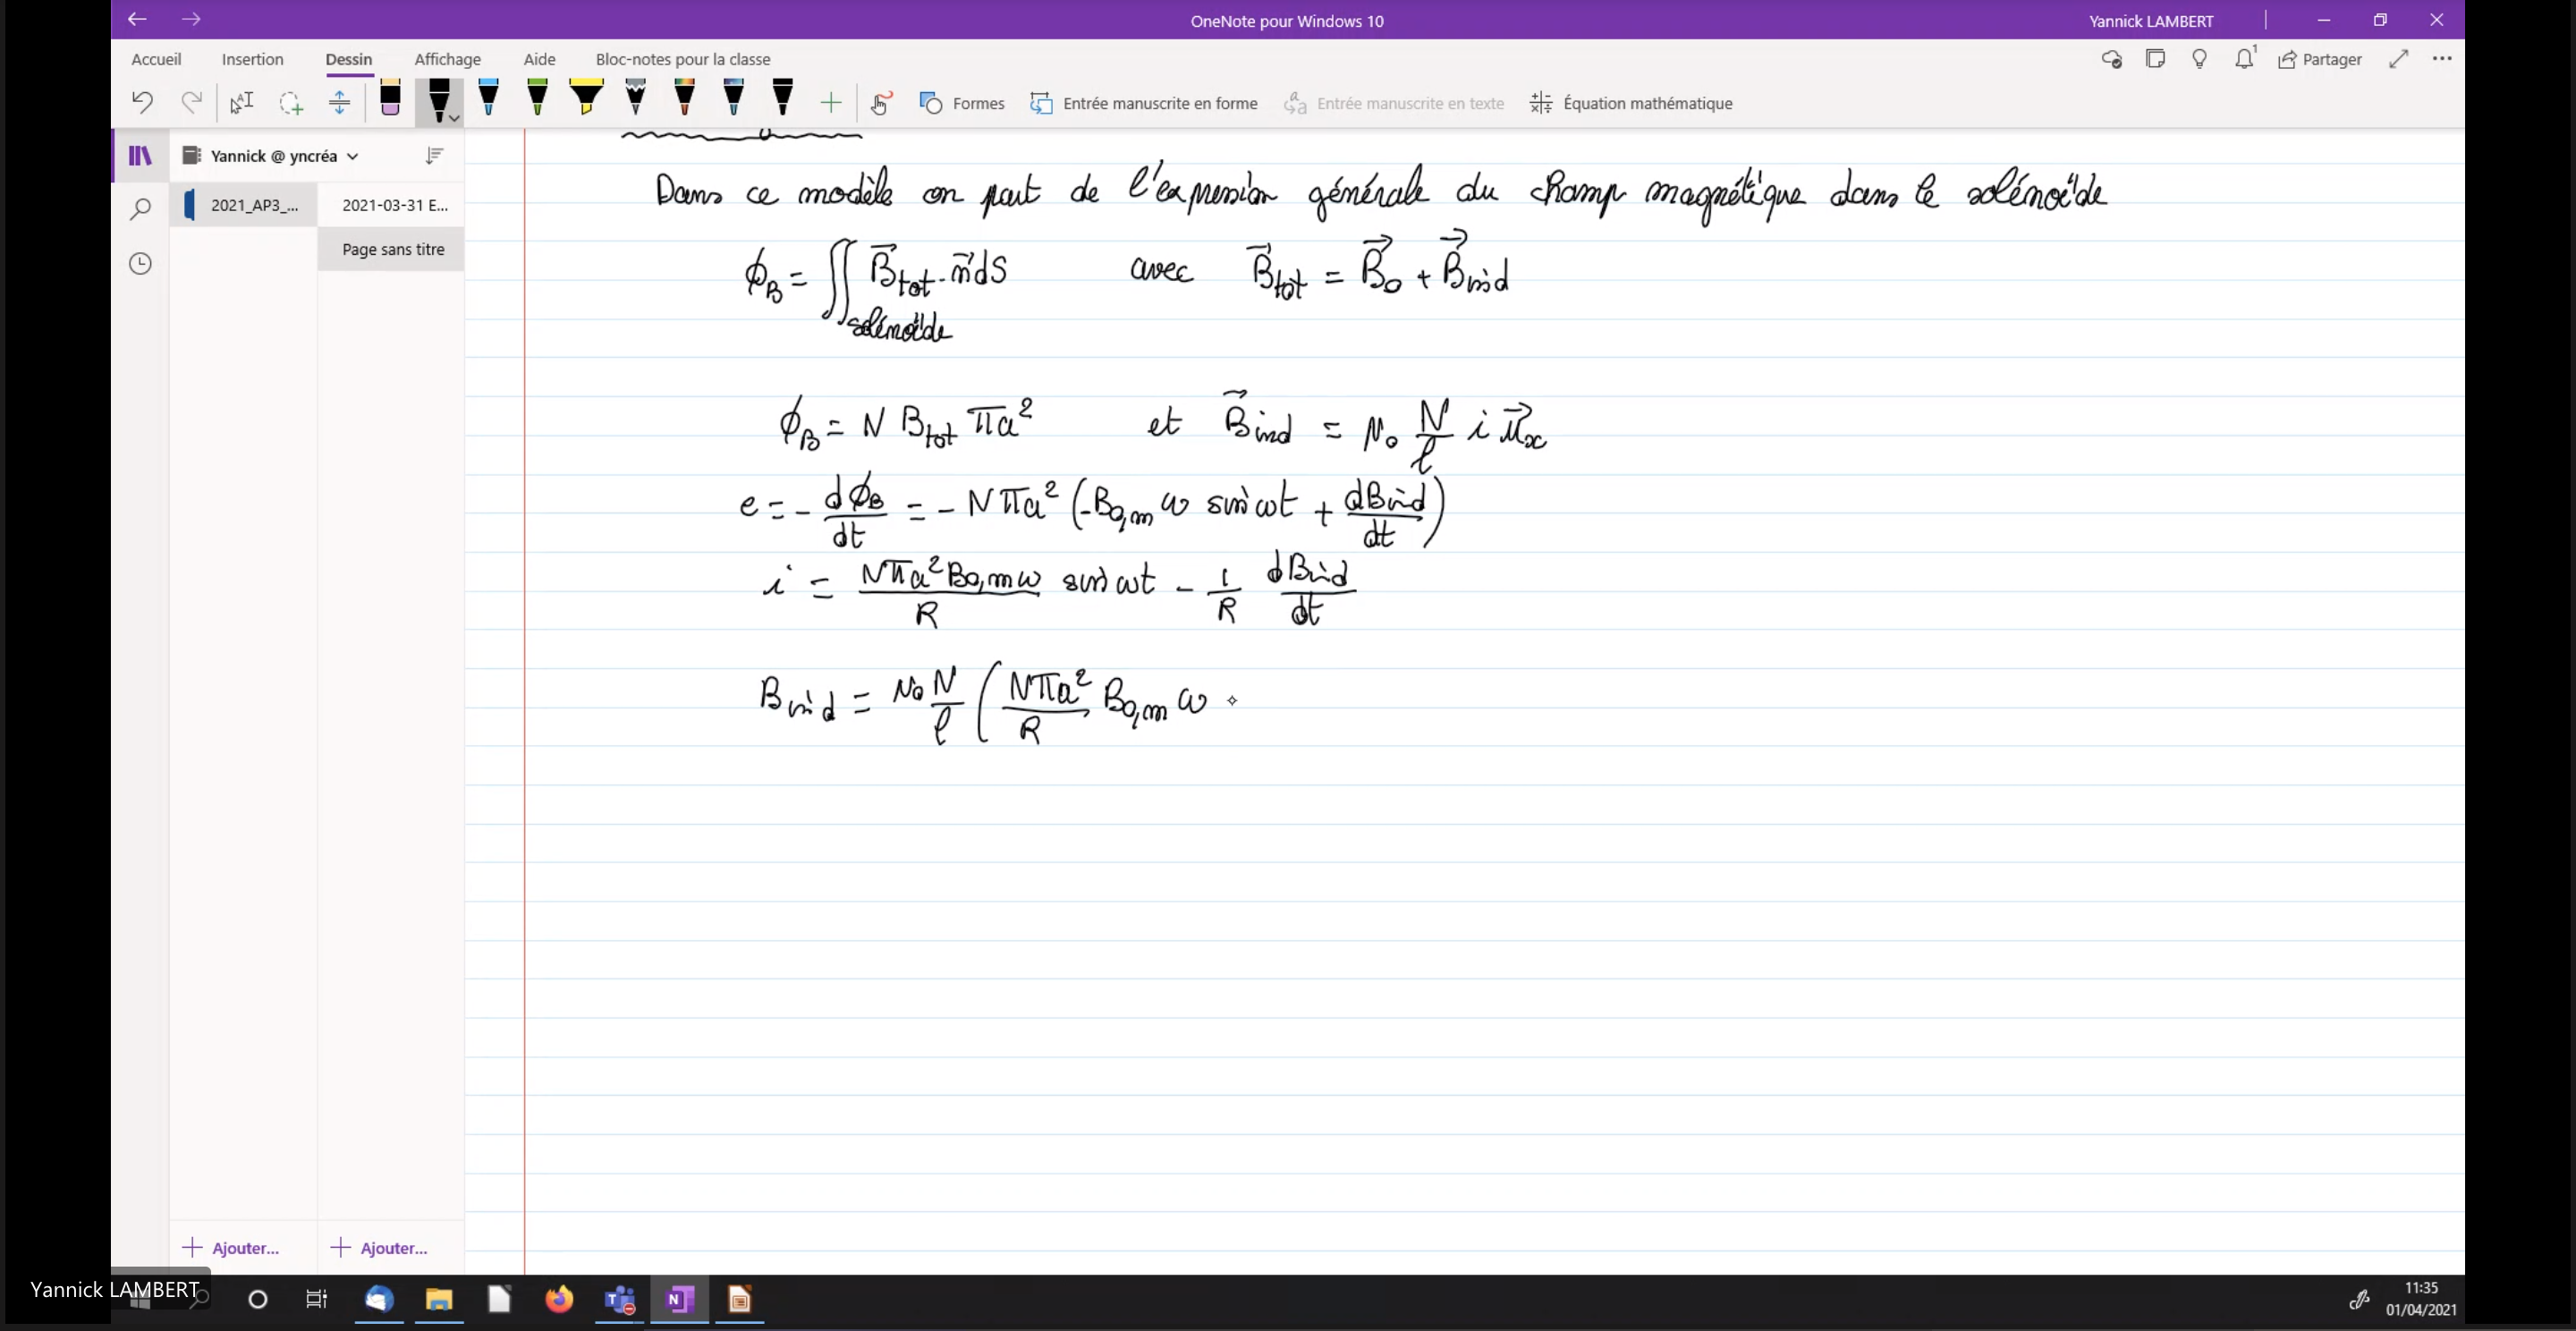 OneNote pour Windows 10
Yannick LAMBERT
Accueil Insertion Dessin Affichage Aide Bloc-notes pour la classe
1 Partager
Formes Entrée manuscrite en forme Entrée manuscrite en texte Équation mathématique
Yannick @ yncréa
2021_AP3_... 2021-03-31 E...
Page sans titre
Dans ce modèle on part de l'expression générale du champ magnétique dans le solénoïde
ϕ_B = ∬_solénoïde B⃗_tot · n⃗ dS avec B⃗_tot = B⃗_0 + B⃗_ind
ϕ_B = N B_tot πa² et B⃗_ind = μ_0 N/ℓ i u⃗_x
e = - dϕ_B/dt = - Nπa² (-B_0,m ω sin ωt + dB_ind/dt)
i = Nπa² B_0,m ω/R sin ωt - 1/R dB_ind/dt
B_ind = μ_0 N/ℓ ( Nπa²/R B_0,m ω
Ajouter... Ajouter...
Yannick LAMBERT
11:35
01/04/2021